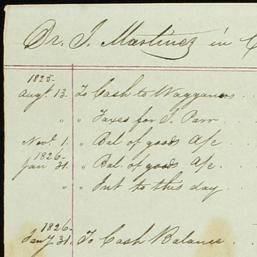 Dr. J. Martinez in
1825.
Augt 13. To Cash to Waggoners
" Taxes for J. Parr
Novr. 1. " Bal of goods A/c
1826.
Jany 31. " Bal. of goods A/c
" " Int to this day
1826.
Jany 31. To Cash Balance